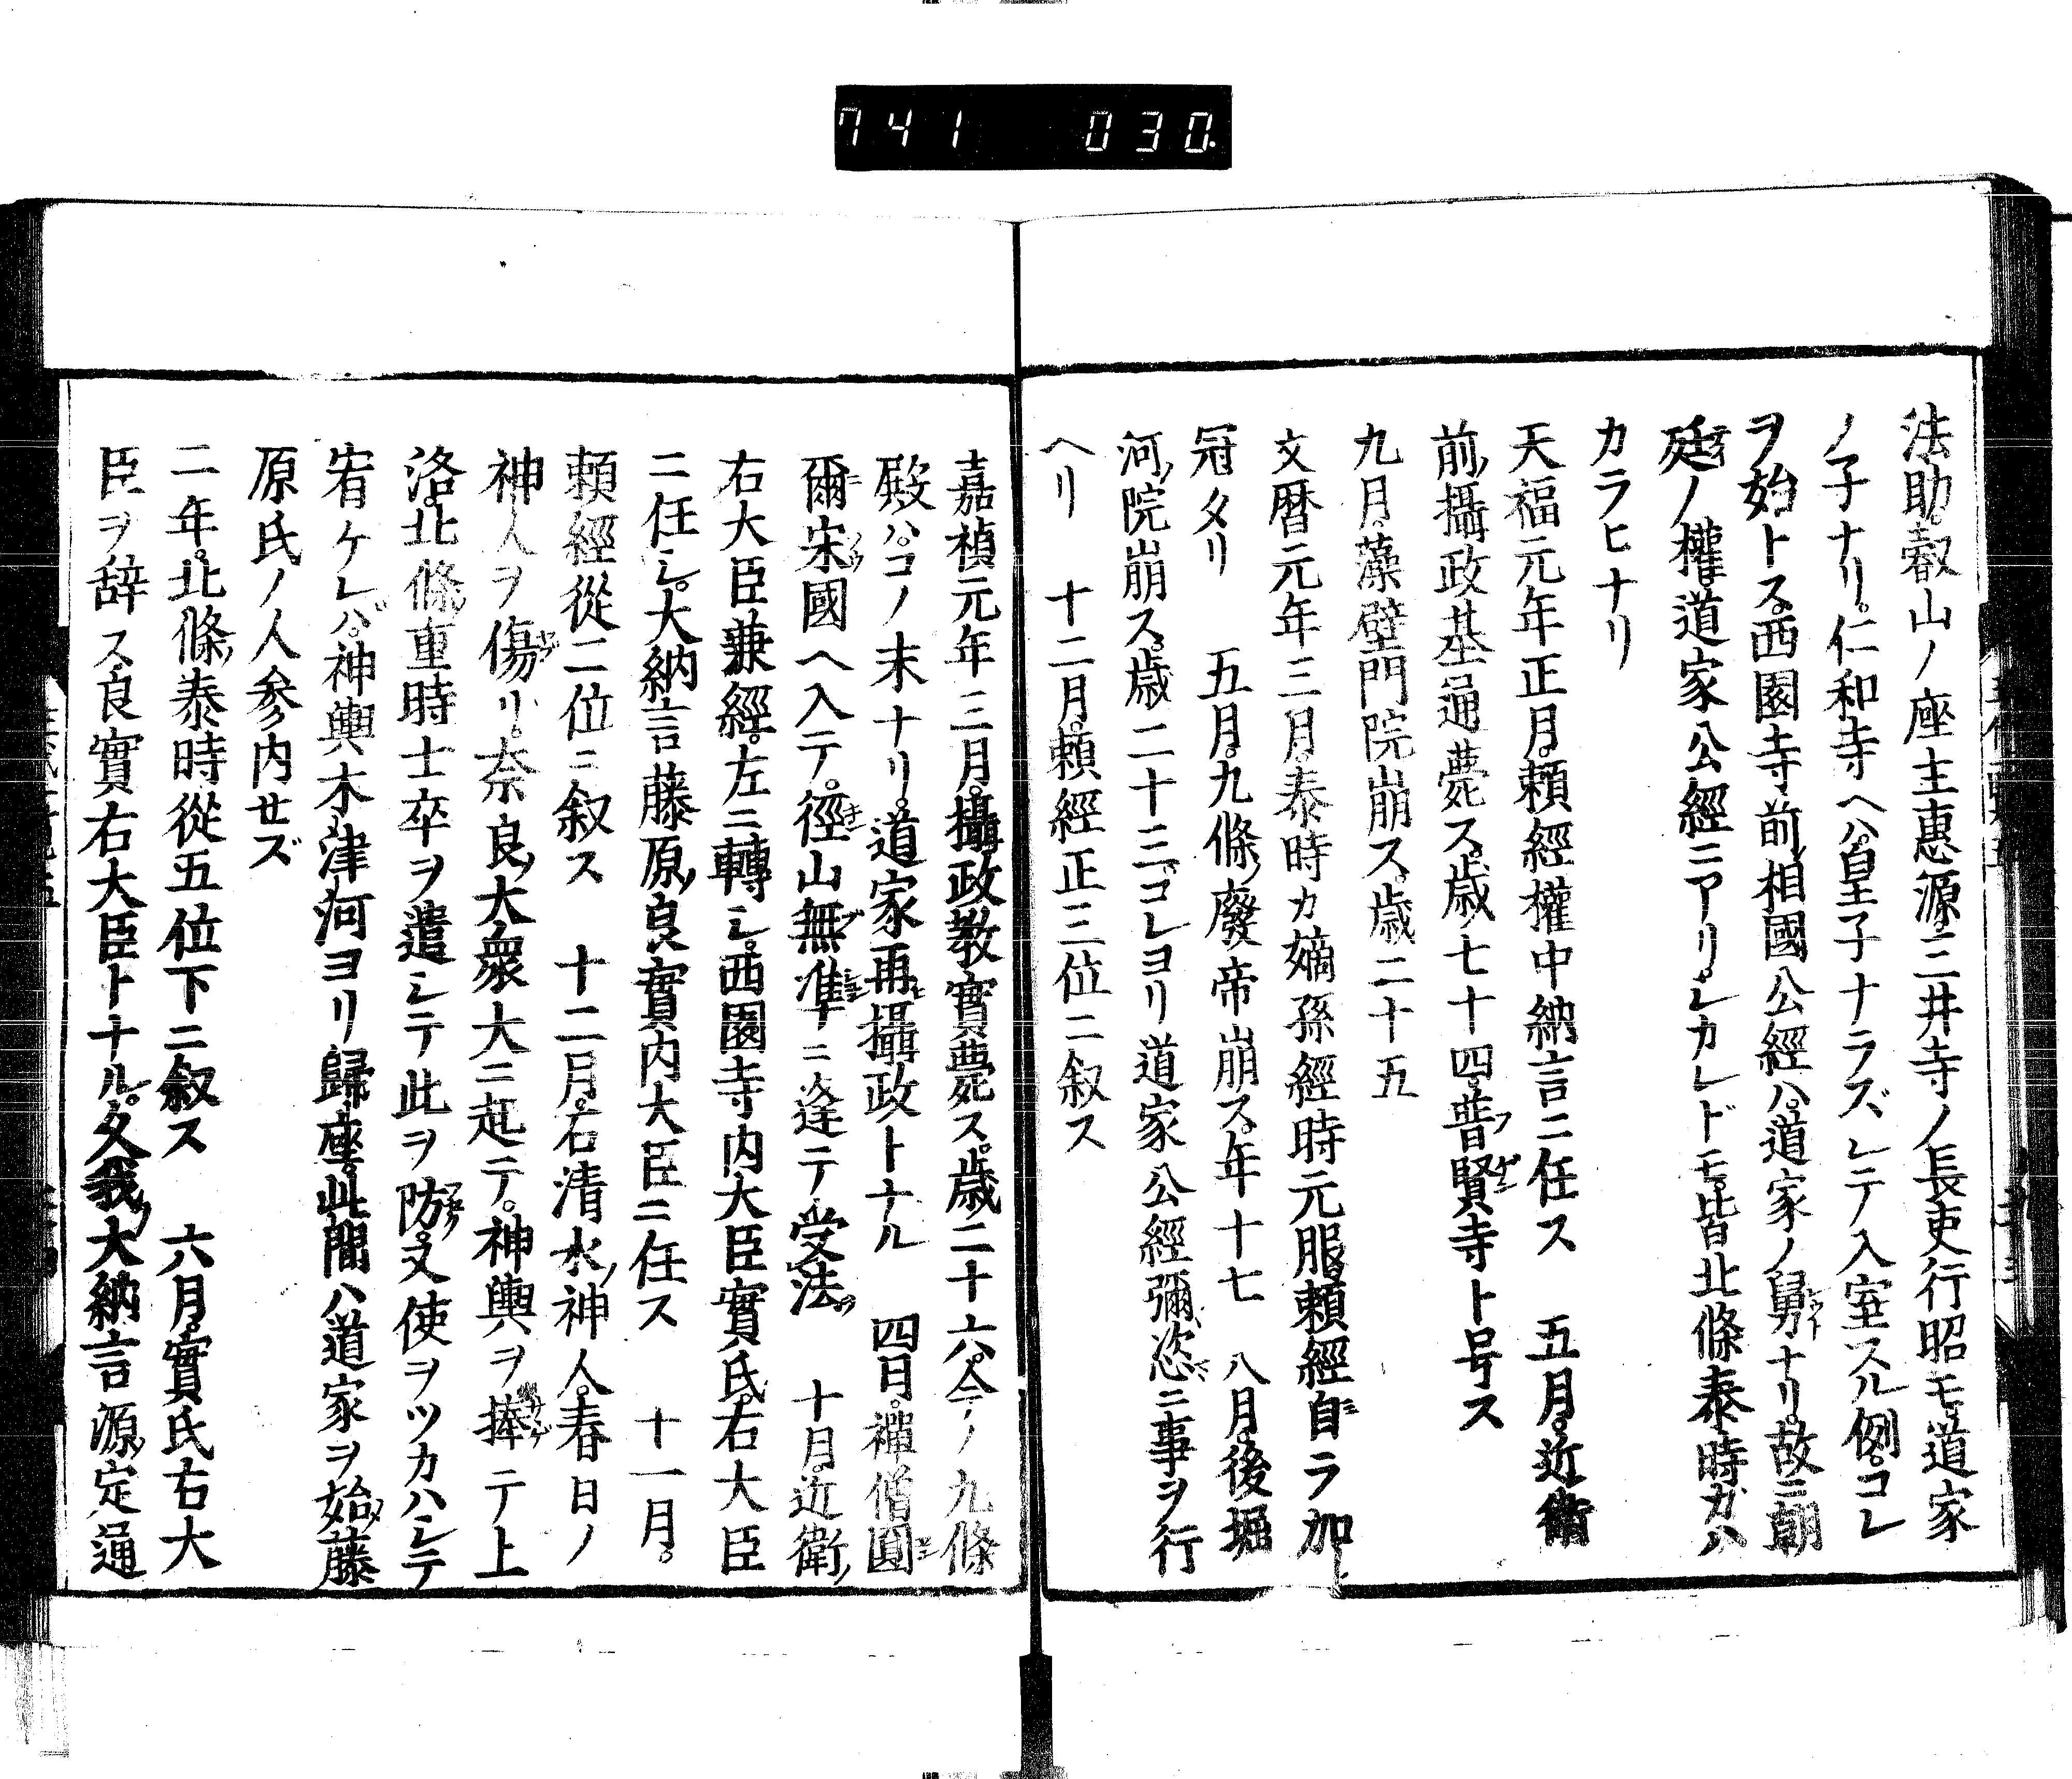 741 030
法助。叡山ノ座主惠源。三井寺ノ長吏行昭モ。道家
ノ子ナリ。仁和寺ヘハ。皇子ナラズシテ入室スル例。コレ
ヲ始トス。西園寺前相國公經ハ。道家ノ舅ナリ。故ニ朝
廷ノ權道家公經ニアリ。シカレドモ。皆北條泰時ガハ
カラヒナリ
天福元年正月。頼經權中納言ニ任ス　五月。近衛
前攝政基通薨ス。歳七十四。普賢寺ト号ス
九月。藻壁門院崩ス。歳二十五
文暦元年三月。泰時カ嫡孫經時元服。頼經自ラ加
冠タリ　五月。九條廢帝崩ス。年十七　八月。後堀
河院崩ス。歳二十三。コレヨリ道家公經彌恣ニ事ヲ行
ヘリ　十二月。頼經正三位ニ叙ス
嘉禎元年三月。攝政教實薨ス。歳二十六。今ノ九條
殿ハ。コノ末ナリ。道家再攝政トナル　四月。禪僧圓
爾宋國ヘ入テ。徑山無準ニ逢テ受法　十月。近衛
右大臣兼經。左ニ轉シ。西園寺内大臣實氏。右大臣
ニ任シ。大納言藤原良實内大臣ニ任ス　十一月。
頼經從二位ニ叙ス　十二月。石清水神人。春日ノ
神人ヲ傷リ。奈良大衆大ニ起テ。神輿ヲ捧テ上
洛。北條重時士卒ヲ遣シテ此ヲ防。又使ヲツカハシテ
宥ケレバ。神輿木津河ヨリ歸座。此間ハ道家ヲ始藤
原氏ノ人参内セズ
二年。北條泰時從五位下ニ叙ス　六月。實氏右大
臣ヲ辞ス。良實右大臣トナル。久我大納言源定通